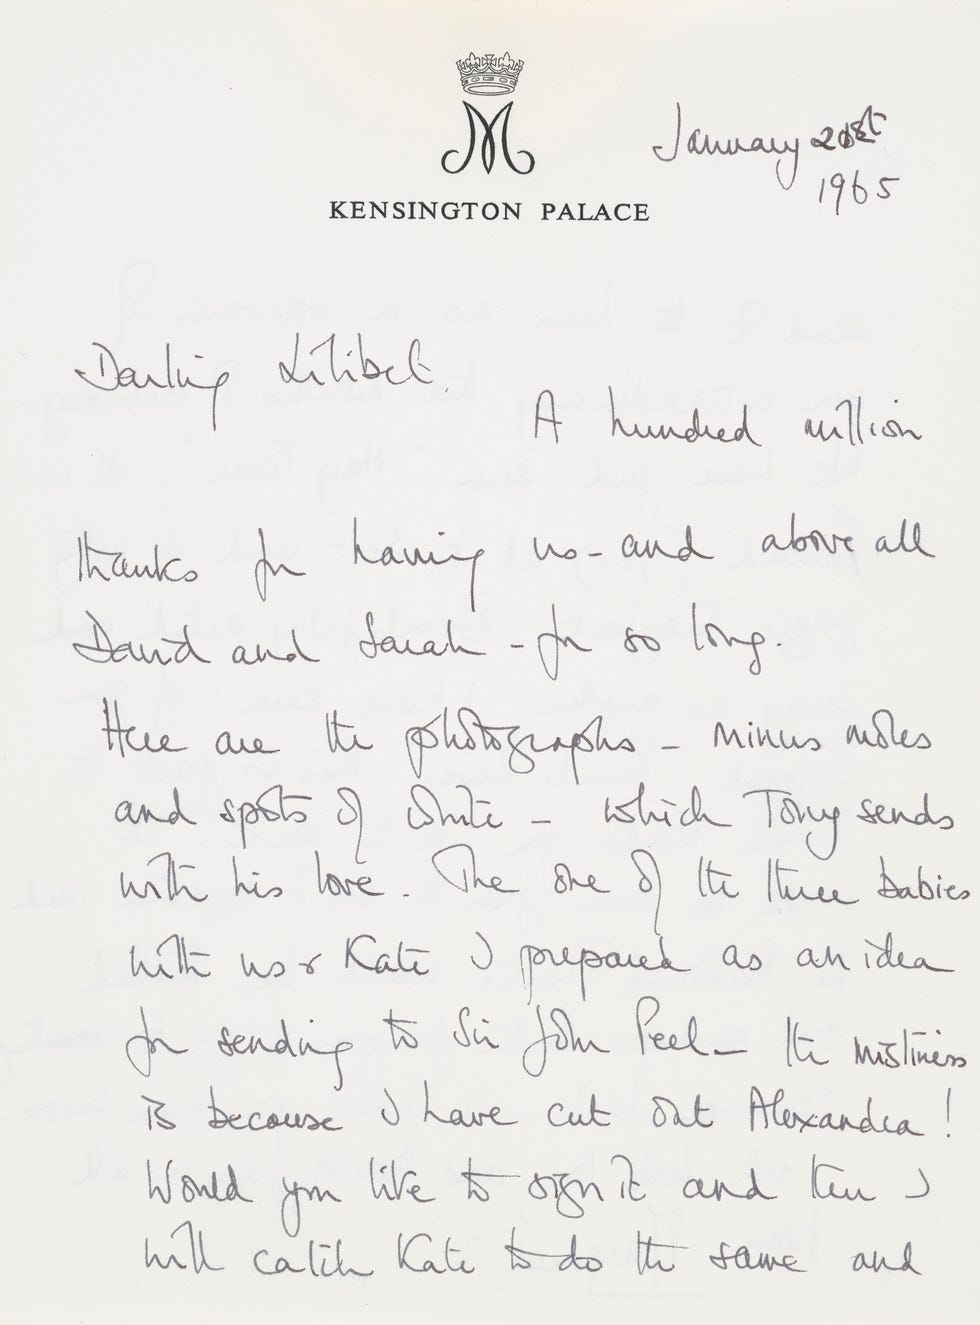 M
January 21st
1965
KENSINGTON PALACE
Darling Lilibet
A hundred million
thanks for having us - and above all
David and Sarah - for so long.
Here are the photographs - minus moles
and spots of white - which Tony sends
with his love. The one of the three babies
with us & Kate I prepared as an idea
for sending to Sir John Peel - the mistiness
is because I have cut out Alexandra!
Would you like to sign it and then I
will catch Kate to do the same and